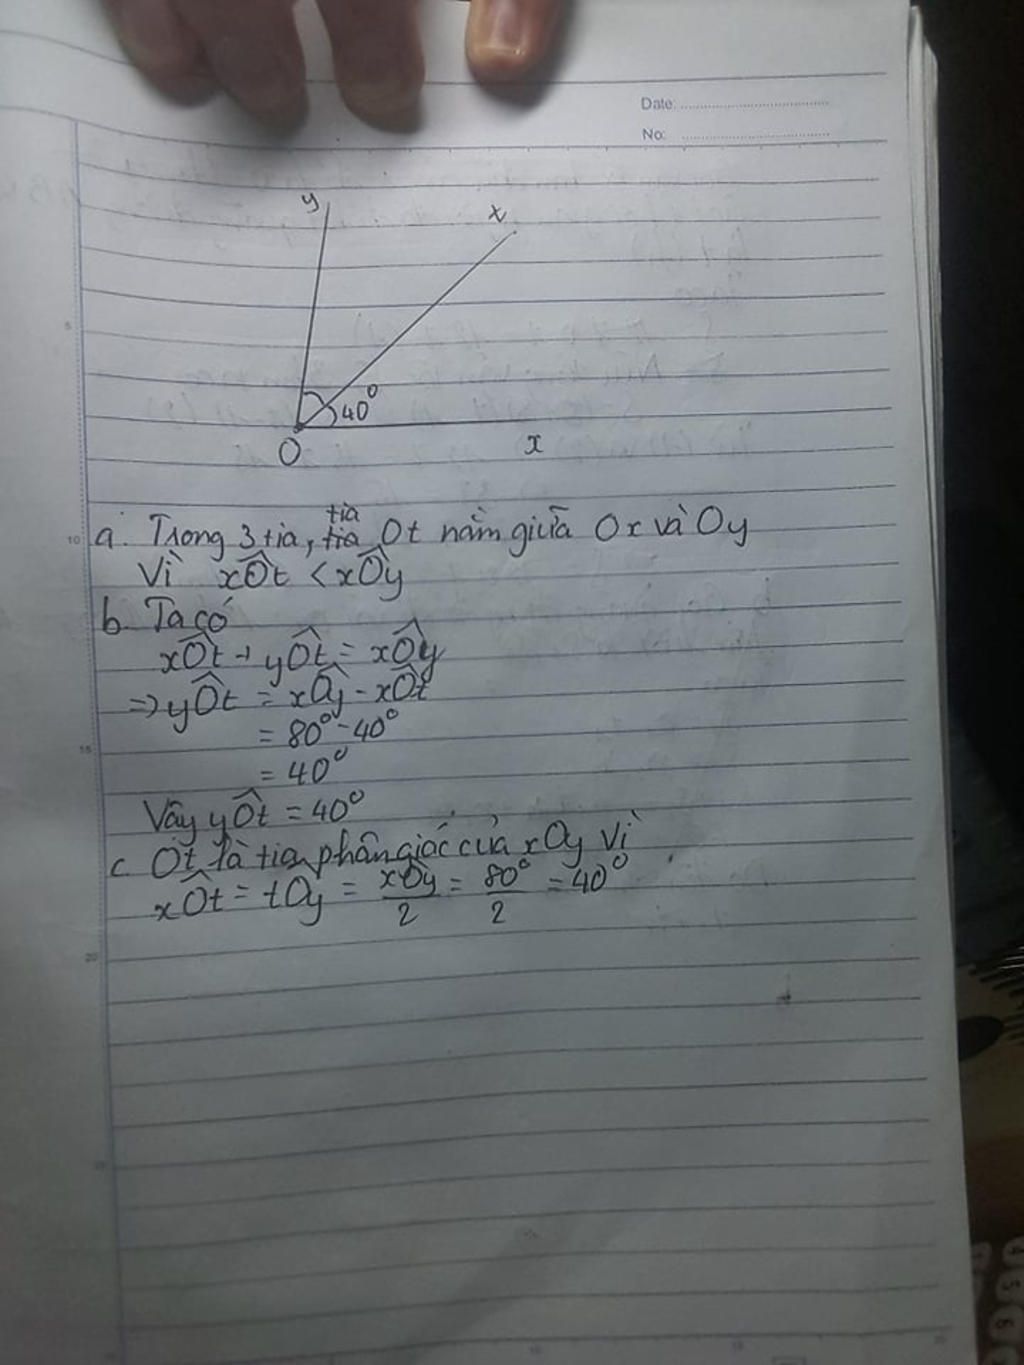 Date:
No:
y
t
40°
O
x
a. Trong 3 tia, tia Ot nằm giữa Ox và Oy
Vì xÔt < xÔy
b. Ta có
xÔt + yÔt = xÔy
=> yÔt = xÔy - xÔt
= 80° - 40°
= 40°
Vậy yÔt = 40°
c. Ot là tia phân giác của xOy vì
xÔt = tOy = xÔy/2 = 80°/2 = 40°